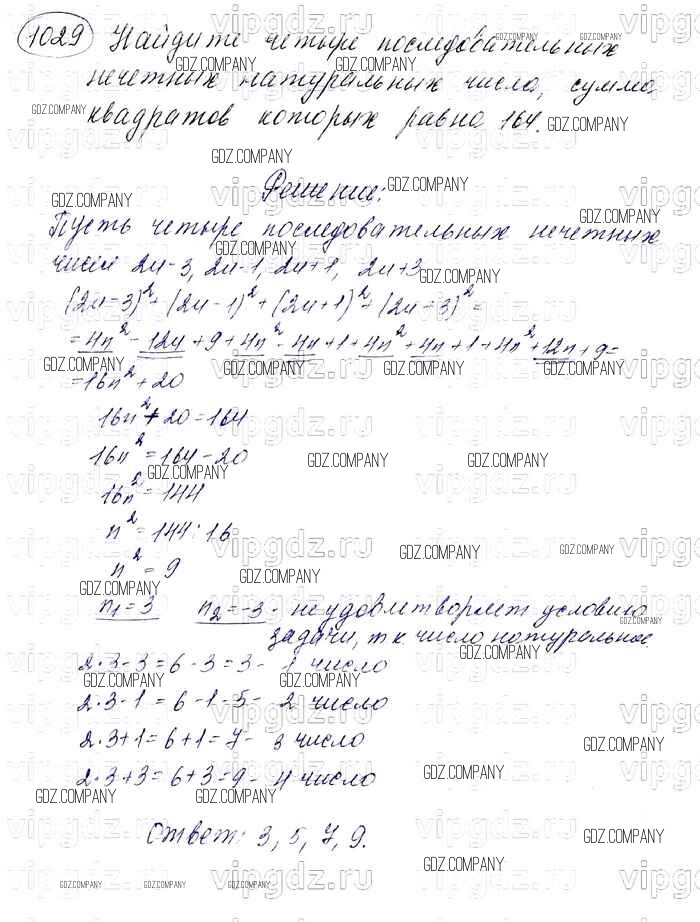 1029 Найдите четыре последовательных
нечетных натуральных числа, сумма
квадратов которых равна 164.
Решение:
Пусть четыре последовательных нечетных
числа 2n-3, 2n-1, 2n+1, 2n+3
(2n-3)²+(2n-1)²+(2n+1)²+(2n+3)²=
=4n²-12n+9+4n²-4n+1+4n²+4n+1+4n²+12n+9=
=16n²+20
16n²+20=164
16n²=164-20
16n²=144
n²=144:16
n²=9
n₁=3 n₂=-3 - не удовлетворяет условию
задачи, т к число натуральное.
2·3-3=6-3=3- 1 число
2·3-1=6-1=5- 2 число
2·3+1=6+1=7- 3 число
2·3+3=6+3=9- 4 число
Ответ: 3, 5, 7, 9.
vipgdz.ru
GDZ.COMPANY